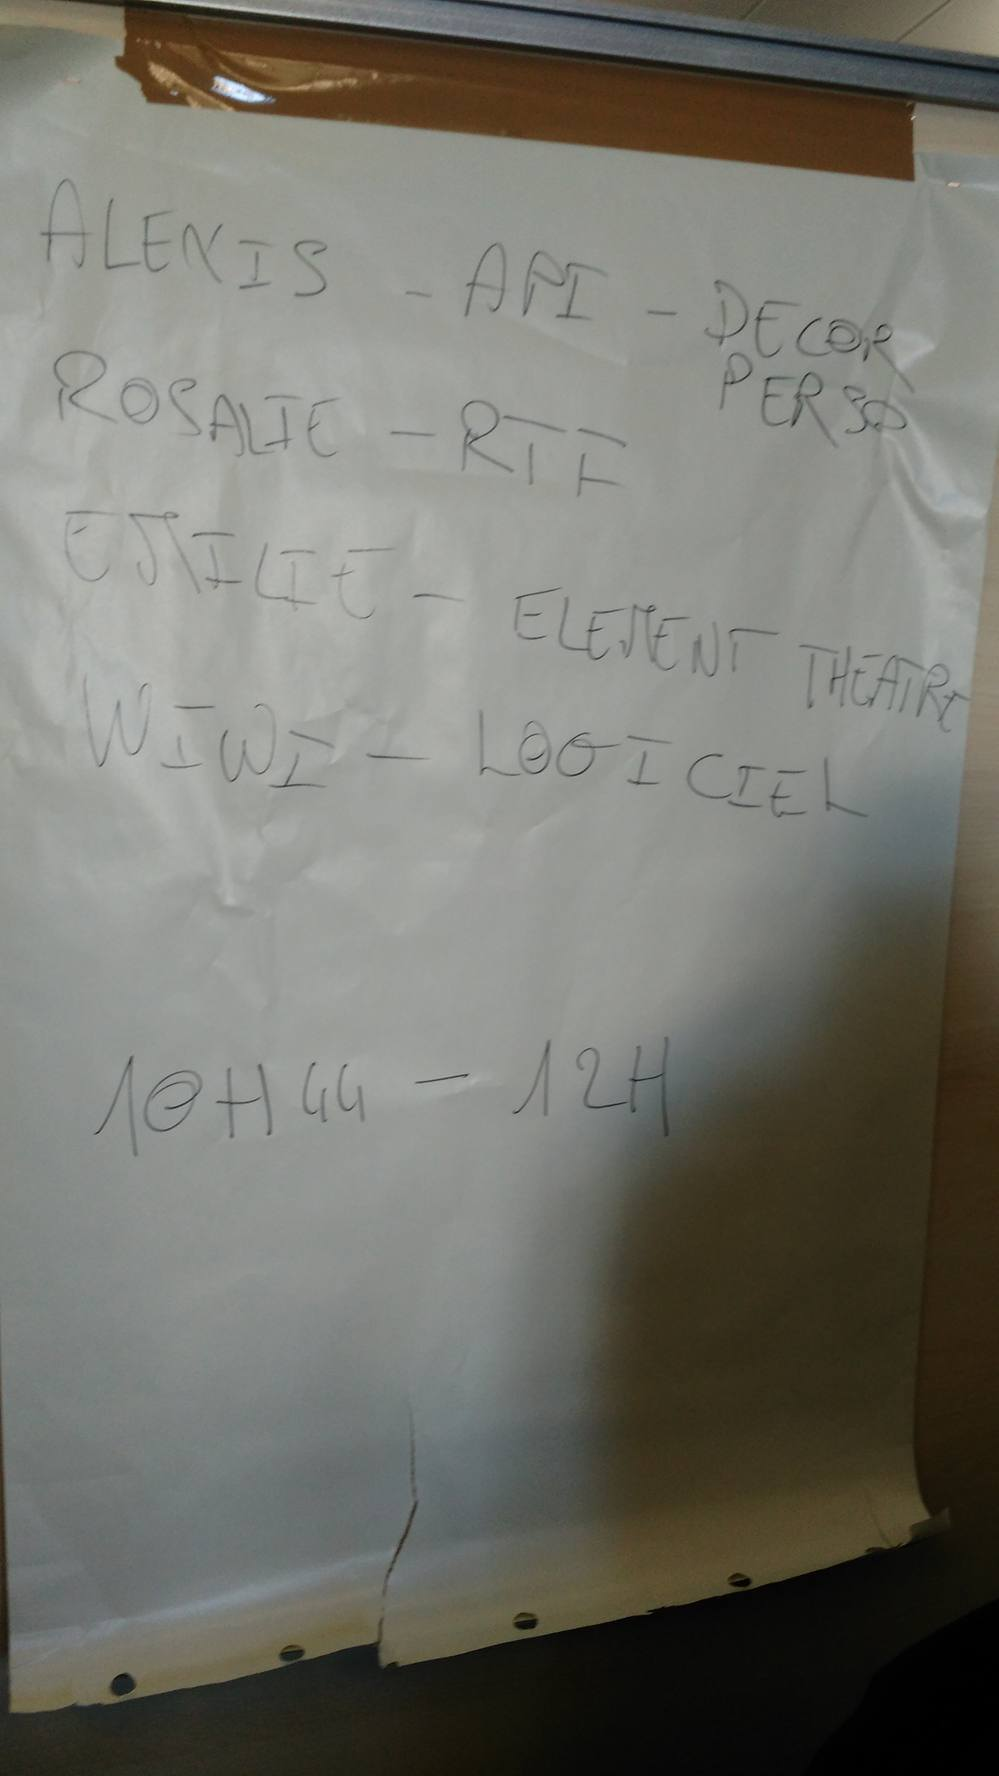 ALEXIS - API - DECOR
PERSO
ROSALIE - RTF
EMILIE - ELEMENT THEATRE
WIWI - LOGICIEL
10H44 - 12H